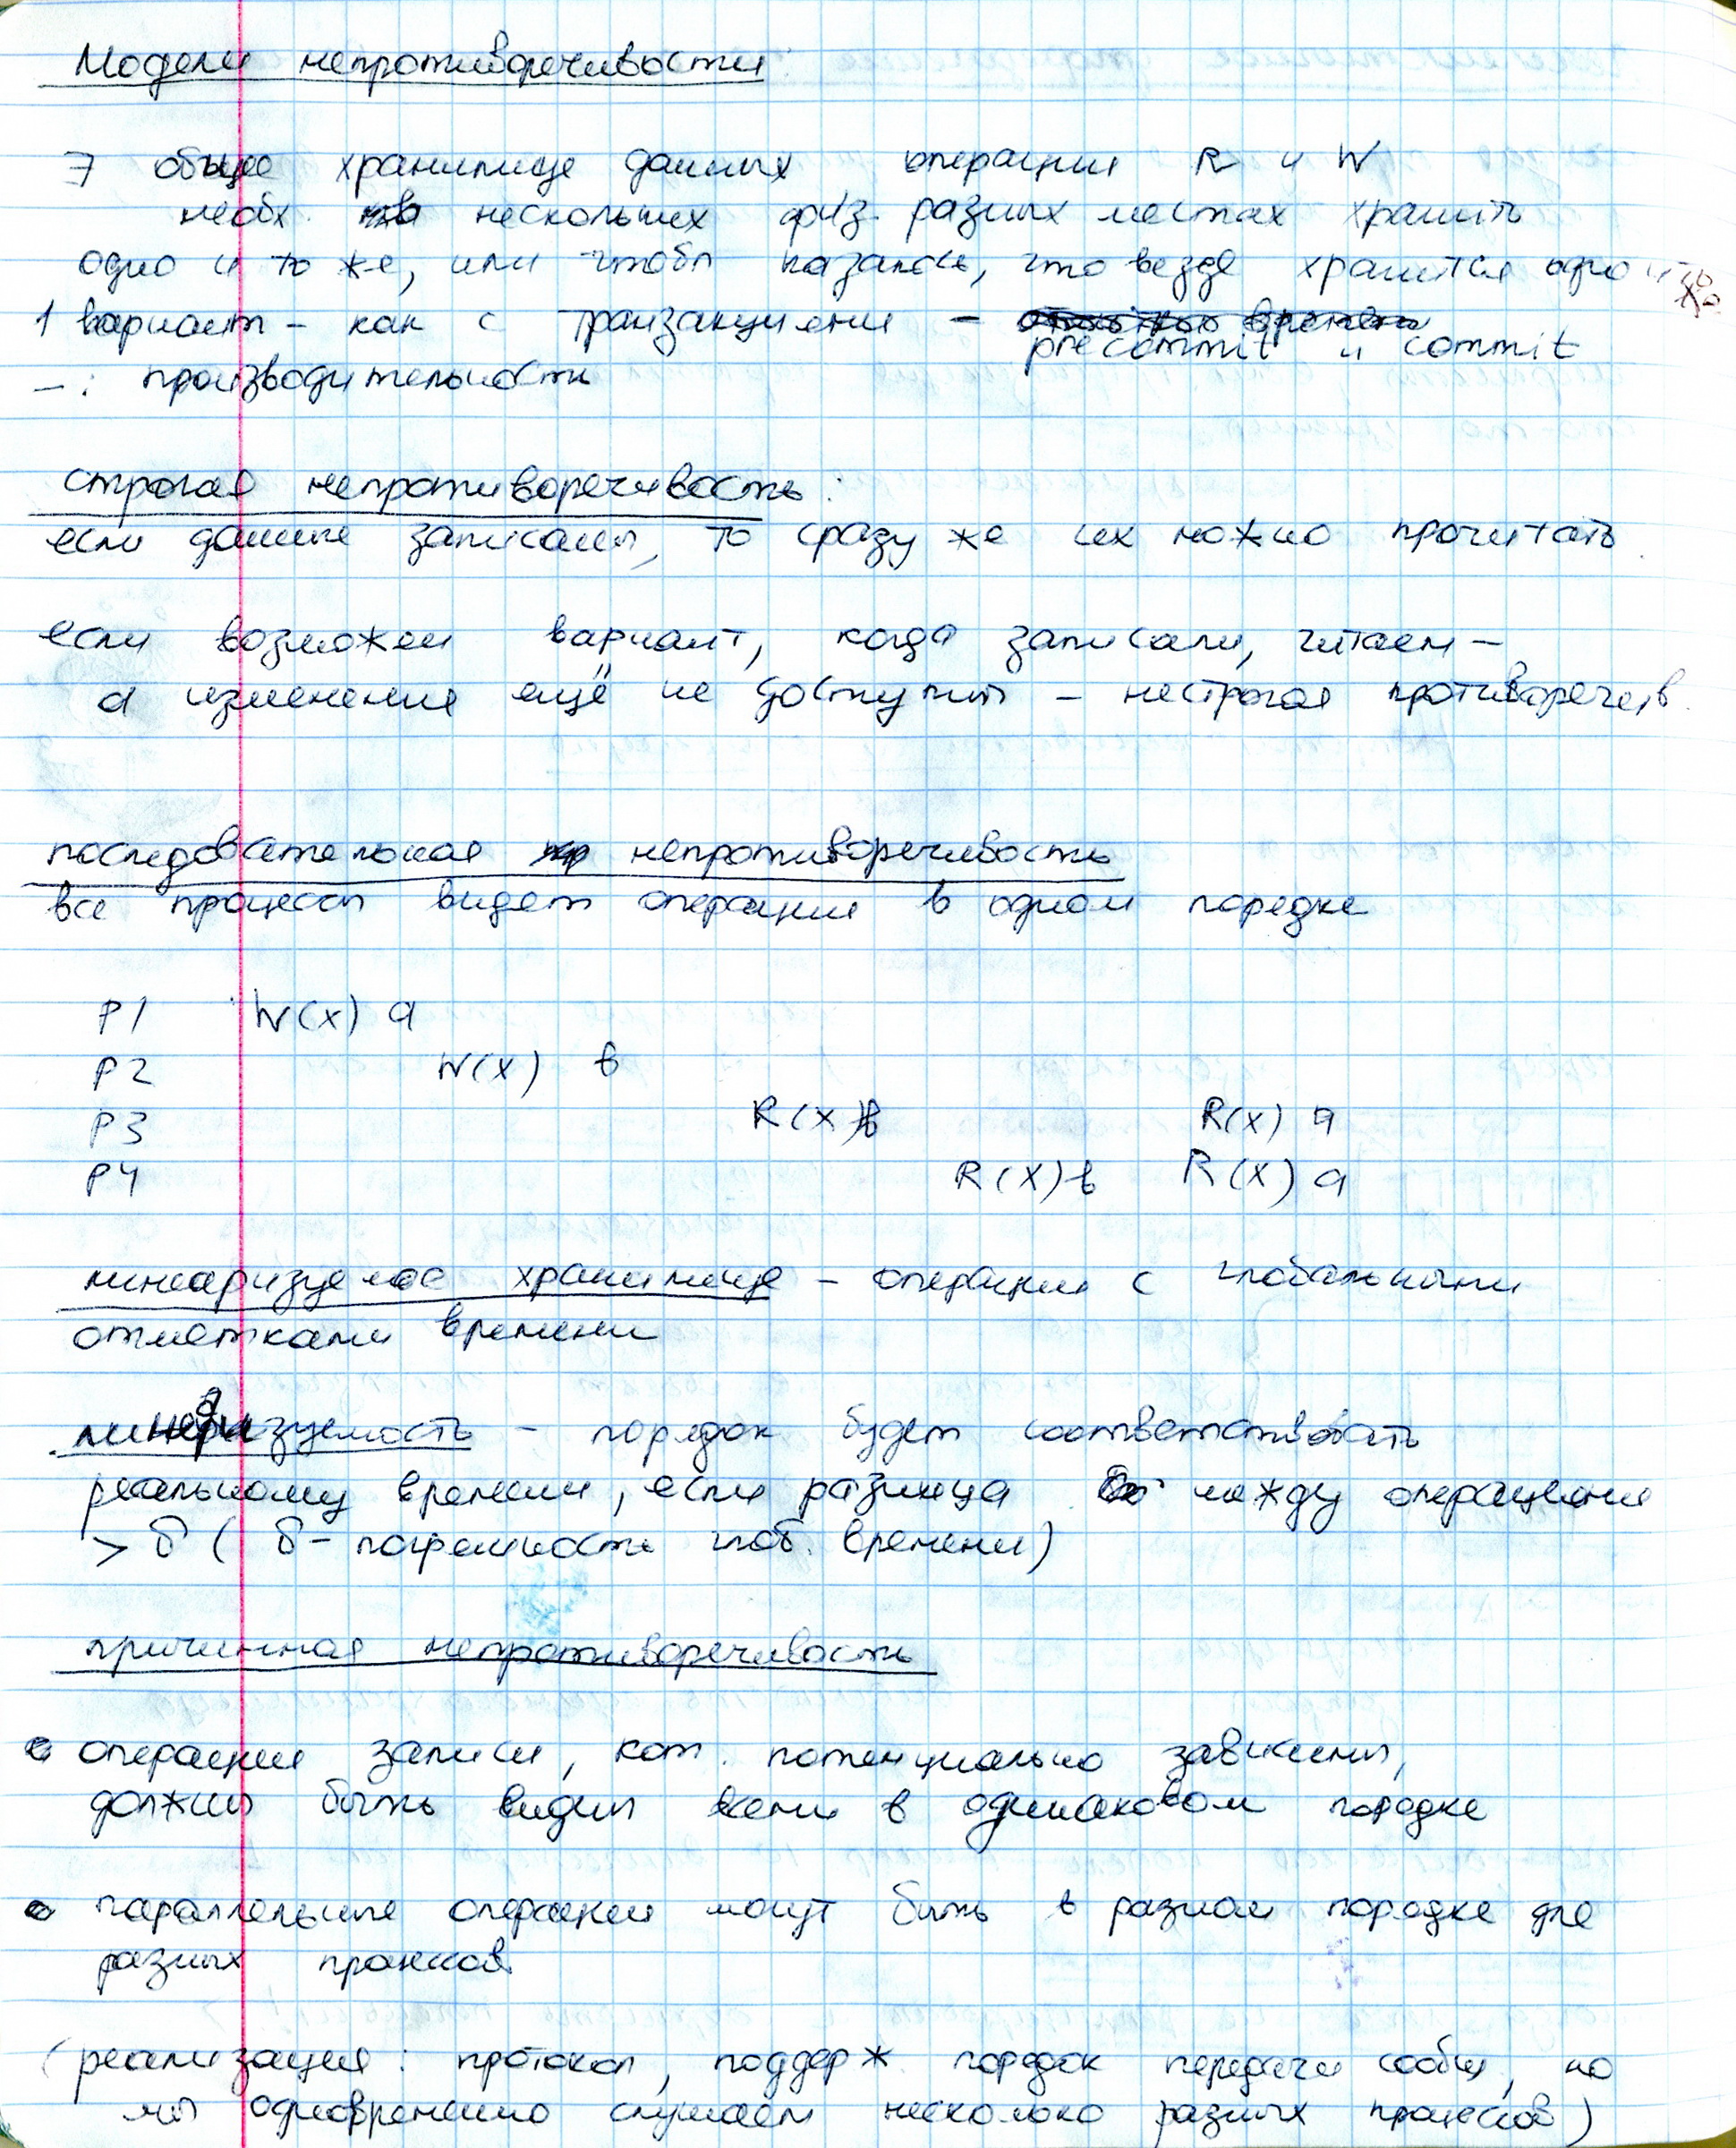 Модели непротиворечивости
∃ общее хранилище данных операции R и W
необх. в нескольких физ. разных местах хранить
одно и то же, или чтобы казалось, что везде хранится одно и то же
1 вариант - как с транзакциями - precommit и commit
- : производительность
строгая непротиворечивость:
если данные записаны, то сразу же их можно прочитать.
если возможен вариант, когда записали, читаем -
а изменения ещё не доступны - нестрогая противоречив.
последовательная непротиворечивость
все процессы видят операции в одном порядке
P1 W(x) a
P2 W(x) b
P3 R(x) b R(x) a
P4 R(x) b R(x) a
линеаризуемое хранилище - операции с глобальными
отметками времени
линеаризуемость - порядок будет соответствовать
реальному времени, если разница между операциями
> δ ( δ - погрешность глоб. времени)
причинная непротиворечивость
• операции записи, кот. потенциально зависимы,
должны быть видны всеми в одинаковом порядке
• параллельные операции могут быть в разном порядке для
разных процессов
(реализация: протокол, поддерж. порядок передачи сообщ, но
мы одновременно слушаем несколько разных процессов)